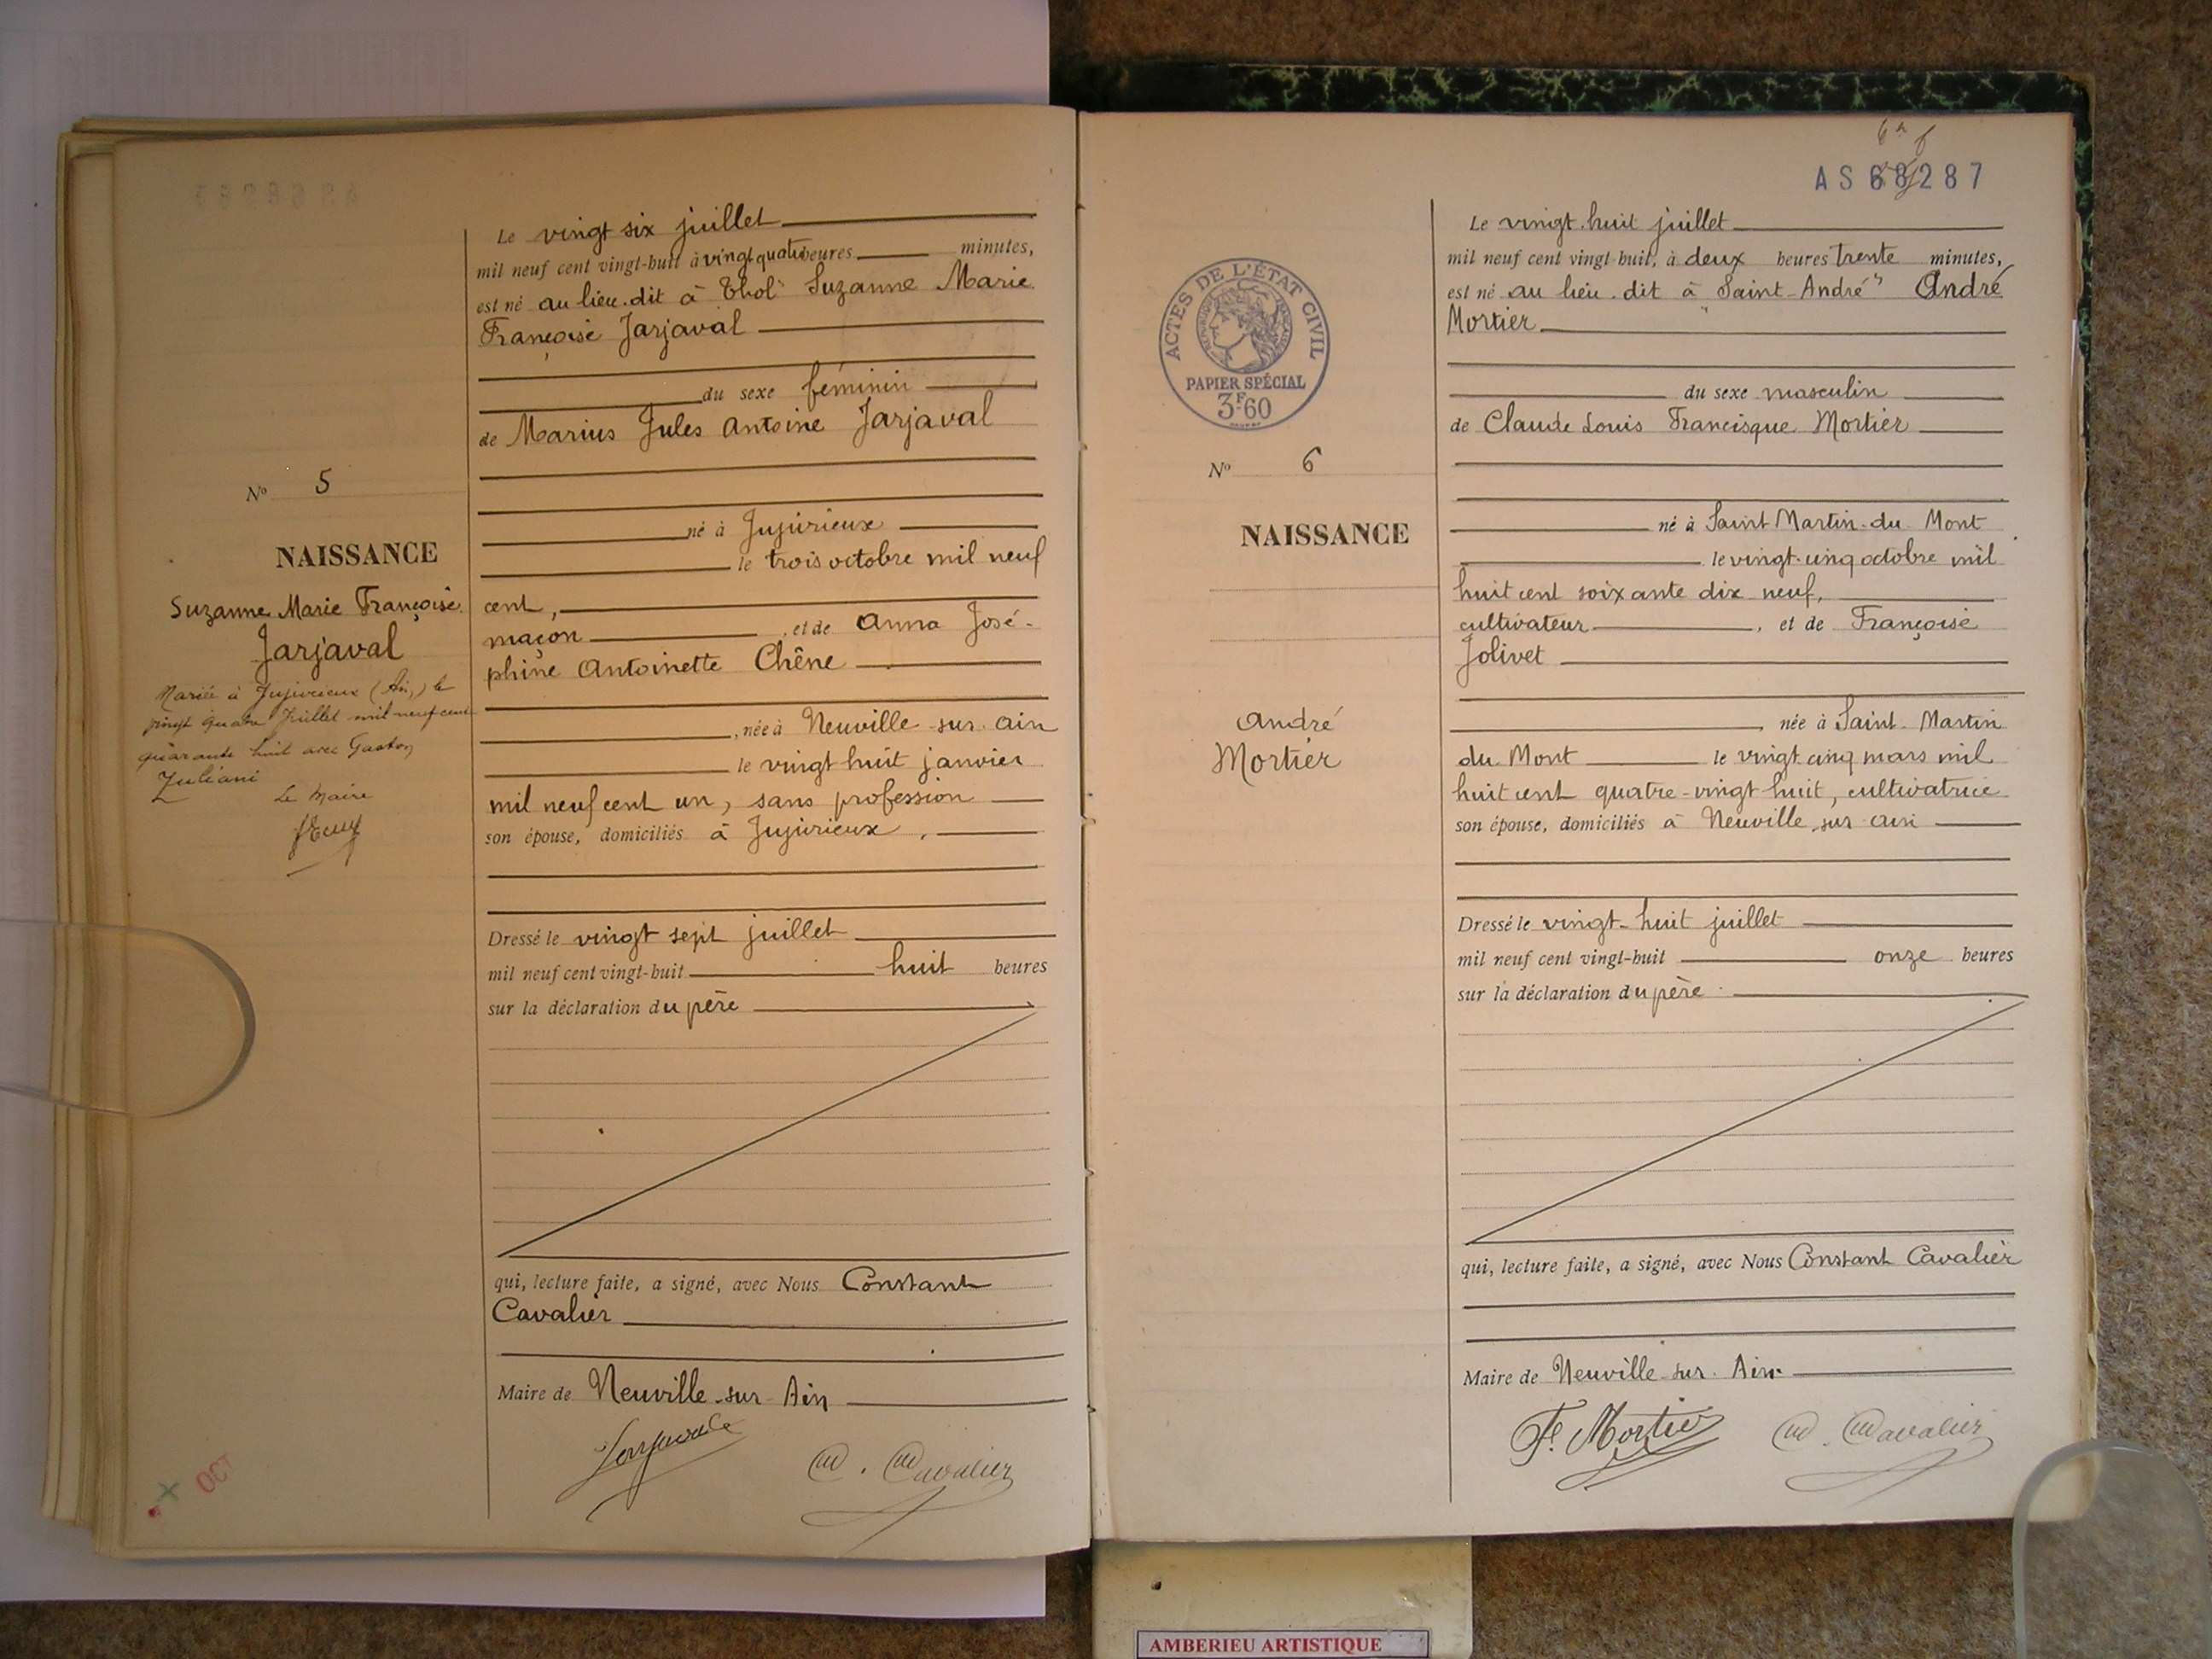 Le vingt six juillet
mil neuf cent vingt-huit à vingt quatre heures minutes,
est né au lieu. dit à Thol" Suzanne Marie
Françoise Jarjaval
du sexe féminin
de Marius Jules Antoine Jarjaval
né à Jujurieux
le trois octobre mil neuf
cent,
maçon, et de Anna José-
phine Antoinette Chêne
, née à Neuville-sur-Ain
le vingt huit janvier
mil neuf cent un, sans profession
son épouse, domiciliés à Jujurieux,
Dressé le vingt sept juillet
mil neuf cent vingt-huit huit heures
sur la déclaration du père
qui, lecture faite, a signé, avec Nous Constant
Cavalier
Maire de Neuville-sur-Ain
Jarjaval
Cd. Cavalier
No 5
NAISSANCE
Suzanne Marie Françoise
Jarjaval
Mariée à Jujurieux (Ain) le
vingt quatre Juillet mil neuf cent
quarante huit avec Gaston
Juliani
Le Maire
130
AS68287
Le vingt-huit juillet
mil neuf cent vingt-huit, à deux heures trente minutes,
est né au lieu. dit à "Saint-André" André
Mortier
du sexe masculin
de Claude Louis Francisque Mortier
né à Saint Martin-du-Mont
le vingt-cinq octobre mil
huit cent soixante dix neuf,
cultivateur, et de Françoise
Jolivet
, née à Saint-Martin
du Mont le vingt cinq mars mil
huit cent quatre-vingt huit, cultivatrice
son épouse, domiciliés à Neuville-sur-Ain
Dressé le vingt-huit juillet
mil neuf cent vingt-huit onze heures
sur la déclaration du père
qui, lecture faite, a signé, avec Nous Constant Cavalier
Maire de Neuville-sur-Ain
F. Mortier
Cd. Cavalier
ACTES DE L'ÉTAT CIVIL
PAPIER SPÉCIAL
3F60
No 6
NAISSANCE
André
Mortier
AMBERIEU ARTISTIQUE